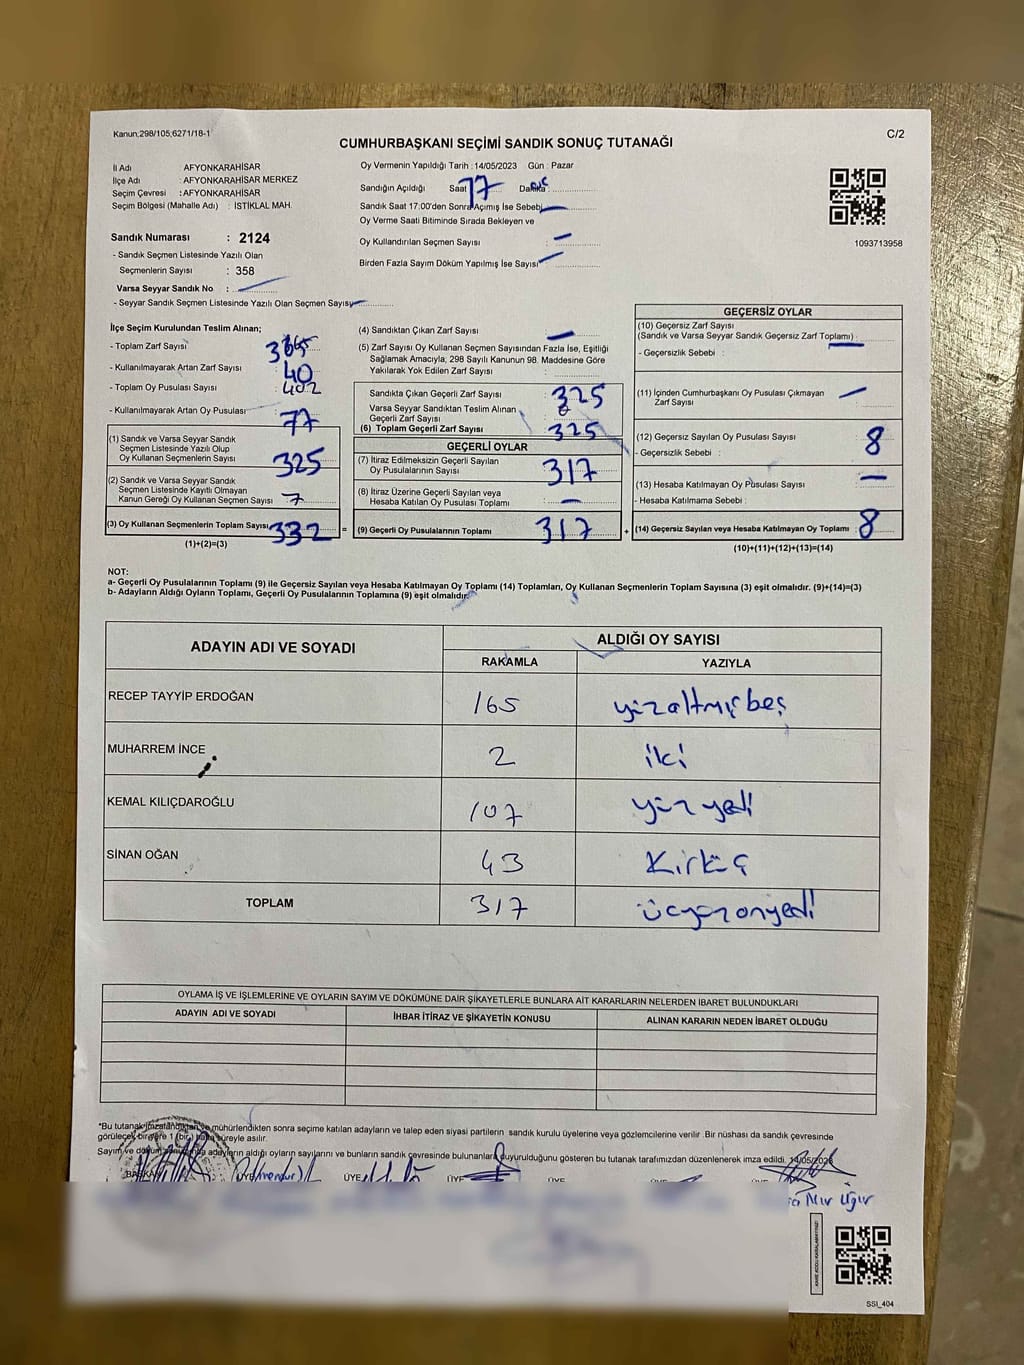 Kanun;298/105,6271/18-1
C/2
CUMHURBAŞKANI SEÇİMİ SANDIK SONUÇ TUTANAĞI
İl Adı AFYONKARAHİSAR
İlçe Adı : AFYONKARAHİSAR MERKEZ
Seçim Çevresi : AFYONKARAHİSAR
Seçim Bölgesi (Mahalle Adı) : İSTİKLAL MAH.
Oy Vermenin Yapıldığı Tarih : 14/05/2023 Gün : Pazar
Sandığın Açıldığı Saat 17 Dakika
Sandık Saat 17:00'den Sonra Açımış İse Sebebi
Oy Verme Saati Bitiminde Sırada Bekleyen ve
Oy Kullandırılan Seçmen Sayısı : –
Birden Fazla Sayım Döküm Yapılmış İse Sayısı –
1093713958
Sandık Numarası : 2124
- Sandık Seçmen Listesinde Yazılı Olan
Seçmenlerin Sayısı : 358
Varsa Seyyar Sandık No : –
- Seyyar Sandık Seçmen Listesinde Yazılı Olan Seçmen Sayısı –
İlçe Seçim Kurulundan Teslim Alınan;
- Toplam Zarf Sayısı
- Kullanılmayarak Artan Zarf Sayısı : 40
- Toplam Oy Pusulası Sayısı : 402
- Kullanılmayarak Artan Oy Pusulası 77
(1) Sandık ve Varsa Seyyar Sandık
Seçmen Listesinde Yazılı Olup
Oy Kullanan Seçmenlerin Sayısı 325
(2) Sandık ve Varsa Seyyar Sandık
Seçmen Listesinde Kayıtlı Olmayan
Kanun Gereği Oy Kullanan Seçmen Sayısı 7
(3) Oy Kullanan Seçmenlerin Toplam Sayısı 332 =
(1)+(2)=(3)
(4) Sandıktan Çıkan Zarf Sayısı –
(5) Zarf Sayısı Oy Kullanan Seçmen Sayısından Fazla İse, Eşitliği
Sağlamak Amacıyla; 298 Sayılı Kanunun 98. Maddesine Göre
Yakılarak Yok Edilen Zarf Sayısı :
Sandıkta Çıkan Geçerli Zarf Sayısı : 325
Varsa Seyyar Sandıktan Teslim Alınan
Geçerli Zarf Sayısı
(6) Toplam Geçerli Zarf Sayısı : 325
GEÇERLİ OYLAR
(7) İtiraz Edilmeksizin Geçerli Sayılan
Oy Pusulalarının Sayısı 317
(8) İtiraz Üzerine Geçerli Sayılan veya
Hesaba Katılan Oy Pusulası Toplamı : –
(9) Geçerli Oy Pusulalarının Toplamı 317 +
GEÇERSİZ OYLAR
(10) Geçersiz Zarf Sayısı
(Sandık ve Varsa Seyyar Sandık Geçersiz Zarf Toplamı) : –
- Geçersizlik Sebebi :
(11) İçinden Cumhurbaşkanı Oy Pusulası Çıkmayan
Zarf Sayısı –
(12) Geçersiz Sayılan Oy Pusulası Sayısı : 8
- Geçersizlik Sebebi :
(13) Hesaba Katılmayan Oy Pusulası Sayısı : –
- Hesaba Katılmama Sebebi :
(14) Geçersiz Sayılan veya Hesaba Katılmayan Oy Toplamı : 8
(10)+(11)+(12)+(13)=(14)
NOT:
a- Geçerli Oy Pusulalarının Toplamı (9) ile Geçersiz Sayılan veya Hesaba Katılmayan Oy Toplamı (14) Toplamları, Oy Kullanan Seçmenlerin Toplam Sayısına (3) eşit olmalıdır. (9)+(14)=(3)
b- Adayların Aldığı Oyların Toplamı, Geçerli Oy Pusulalarının Toplamına (9) eşit olmalıdır.
ADAYIN ADI VE SOYADI ALDIĞI OY SAYISI
RAKAMLA YAZIYLA
RECEP TAYYİP ERDOĞAN 165 yüzaltmışbeş
MUHARREM İNCE 2 iki
KEMAL KILIÇDAROĞLU 107 yüz yedi
SİNAN OĞAN 43 Kırküç
TOPLAM 317 üçyüzonyedi
OYLAMA İŞ VE İŞLEMLERİNE VE OYLARIN SAYIM VE DÖKÜMÜNE DAİR ŞİKAYETLERLE BUNLARA AİT KARARLARIN NELERDEN İBARET BULUNDUKLARI
ADAYIN ADI VE SOYADI İHBAR İTİRAZ VE ŞİKAYETİN KONUSU ALINAN KARARIN NEDEN İBARET OLDUĞU
*Bu tutanak imzalandıktan ve mühürlendikten sonra seçime katılan adayların ve talep eden siyasi partilerin sandık kurulu üyelerine veya gözlemcilerine verilir. Bir nüshası da sandık çevresinde
görülecek bir yere 1 (bir) hafta süreyle asılır.
Sayım ve döküm adayların aldığı oyların sayılarını ve bunların sandık çevresinde bulunanlara duyurulduğunu gösteren bu tutanak tarafımızdan düzenlenerek imza edildi. 14/05/2023
BAŞKAN ÜYE ÜYE ÜYE ÜYE ÜYE ÜYE
SSI_404